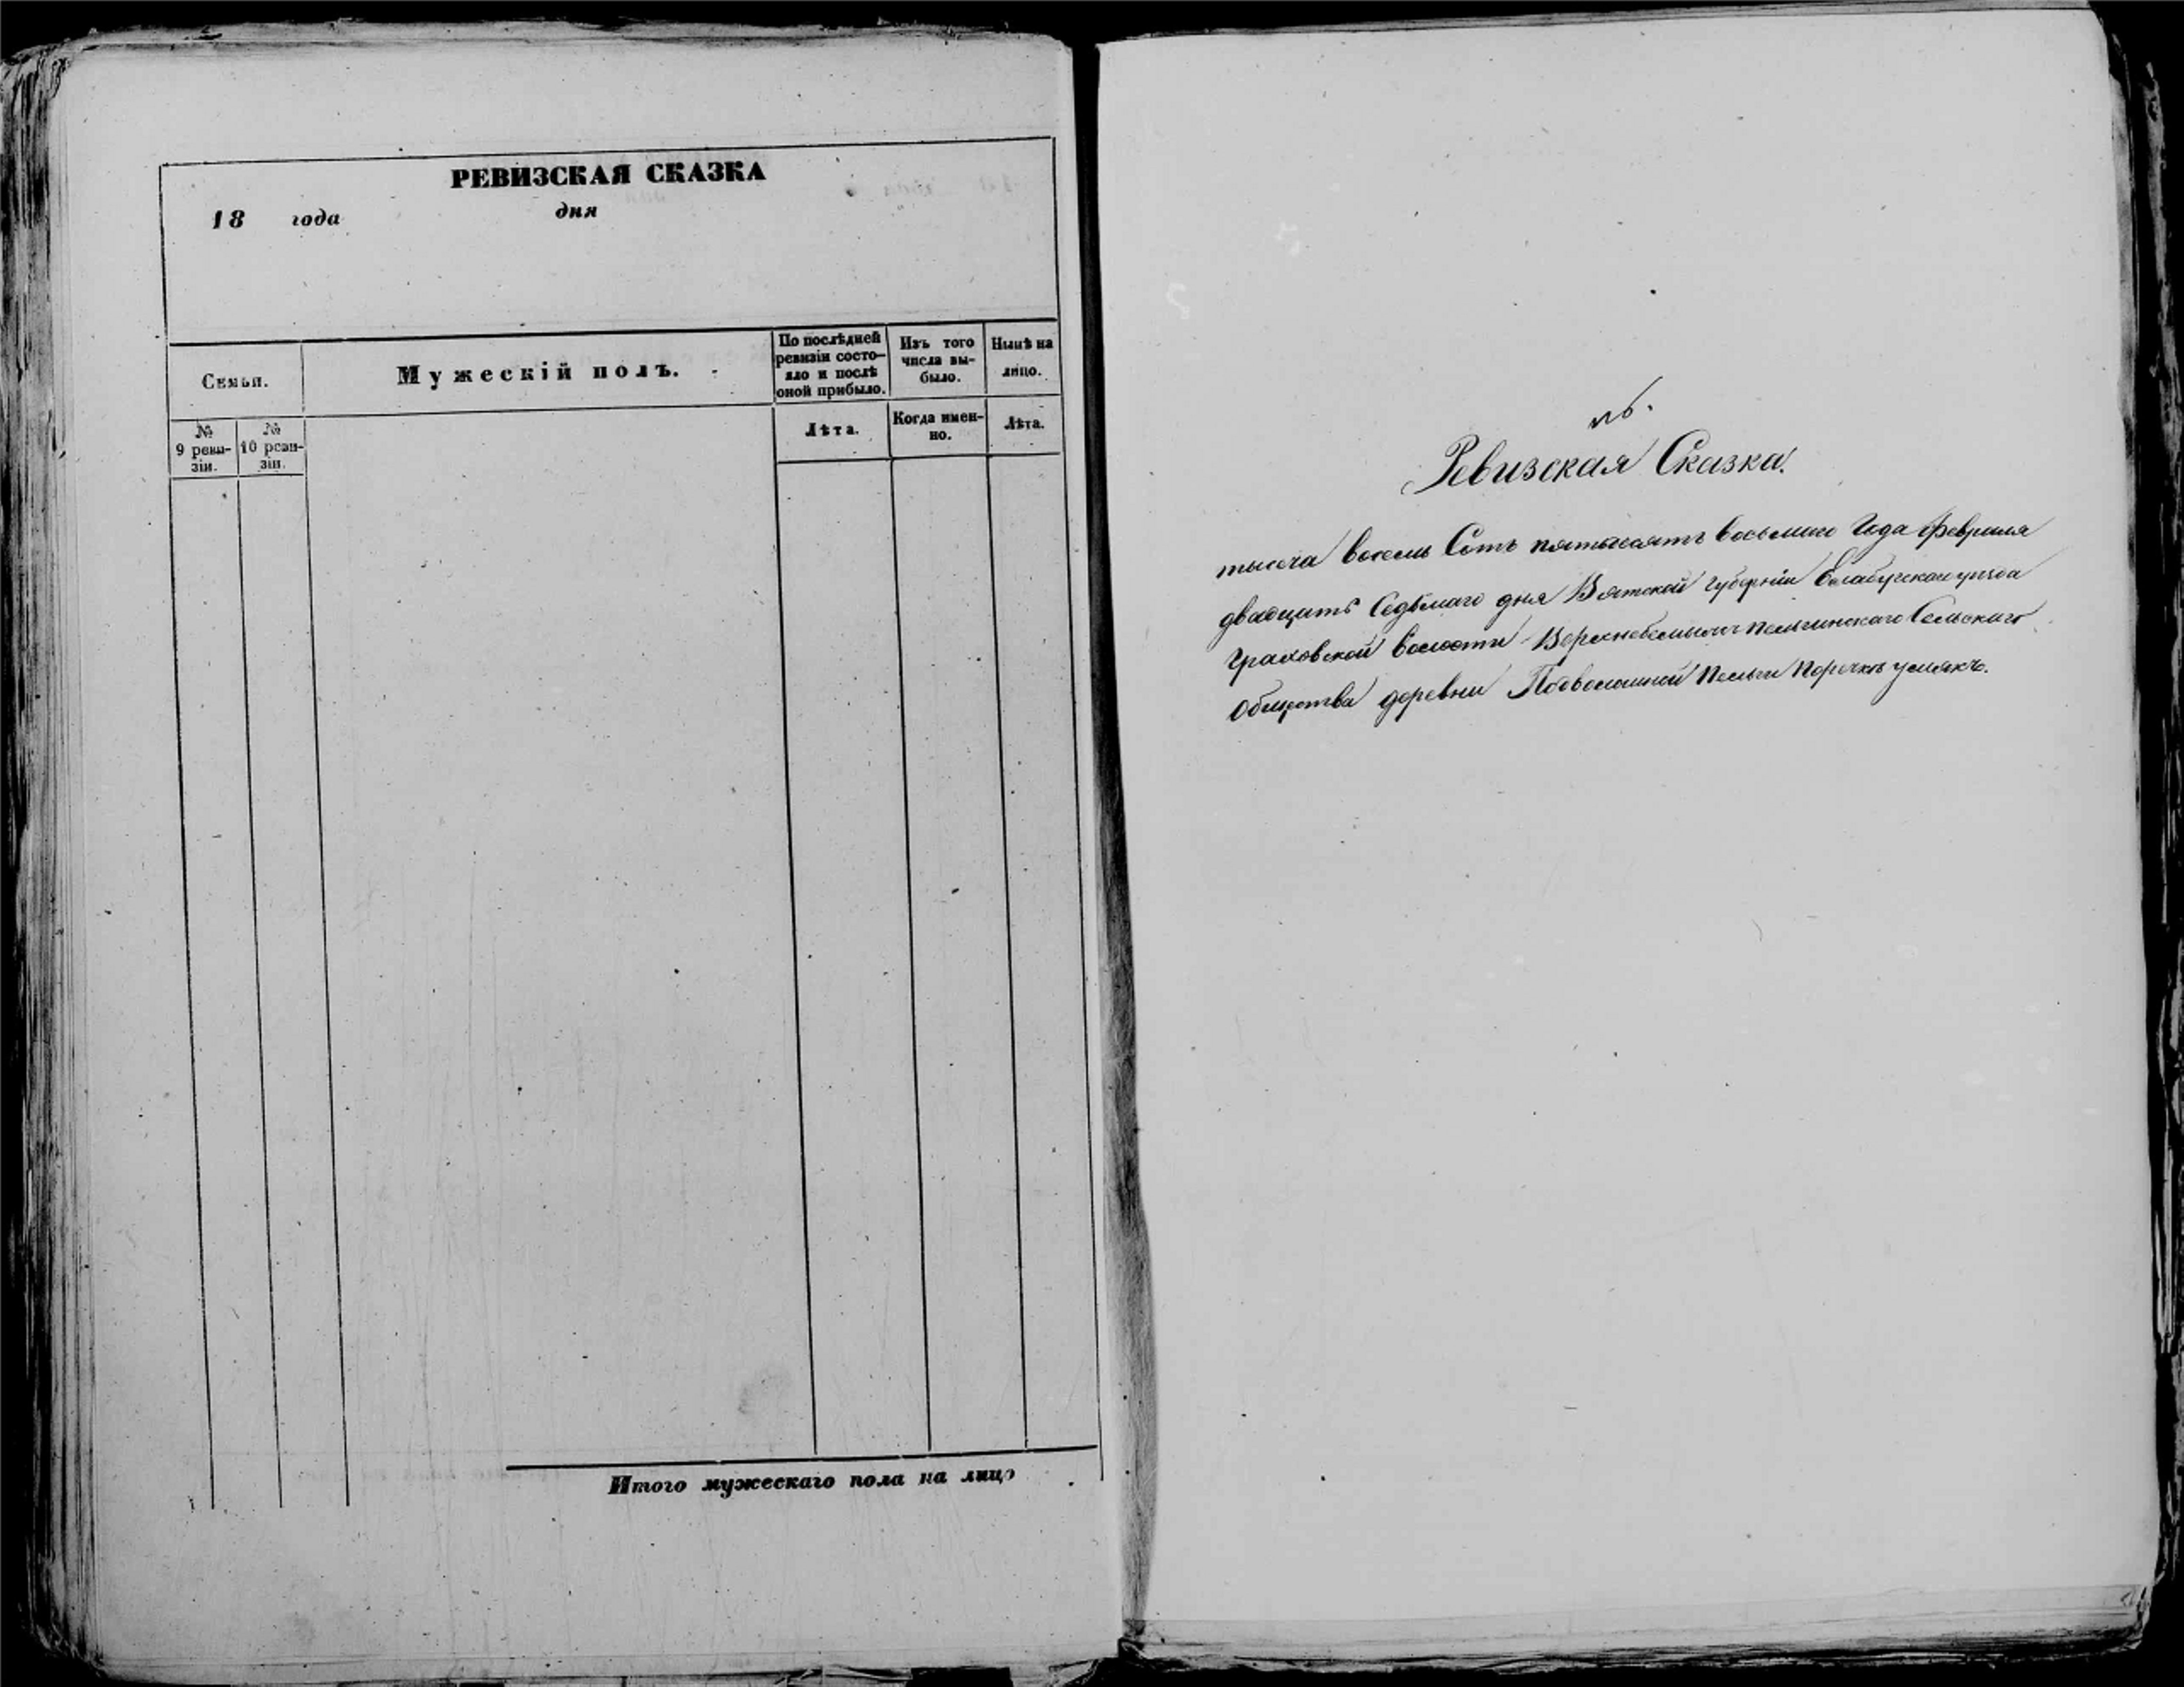 РЕВИЗСКАЯ СКАЗКА
18 года дня
Семьи.
Мужескій полъ.
По послѣдней ревизіи состо-
яло и послѣ оной прибыло.
Изъ того числа вы-
было.
Нынѣ на лицо.
№ 9 реви-
зіи.
№ 10 реви-
зіи.
Лѣта.
Когда имен-
но.
Лѣта.
Итого мужескаго пола на лицо
Ревизская Сказка.
тысеча восемь Сотъ пятьдесятъ восьмаго Года февраля
двадцать Седьмаго дня Вятской губерніи Елабугскаго уѣзда
Граховской волости Сельскаго
Общества деревни пельги поречкѣ